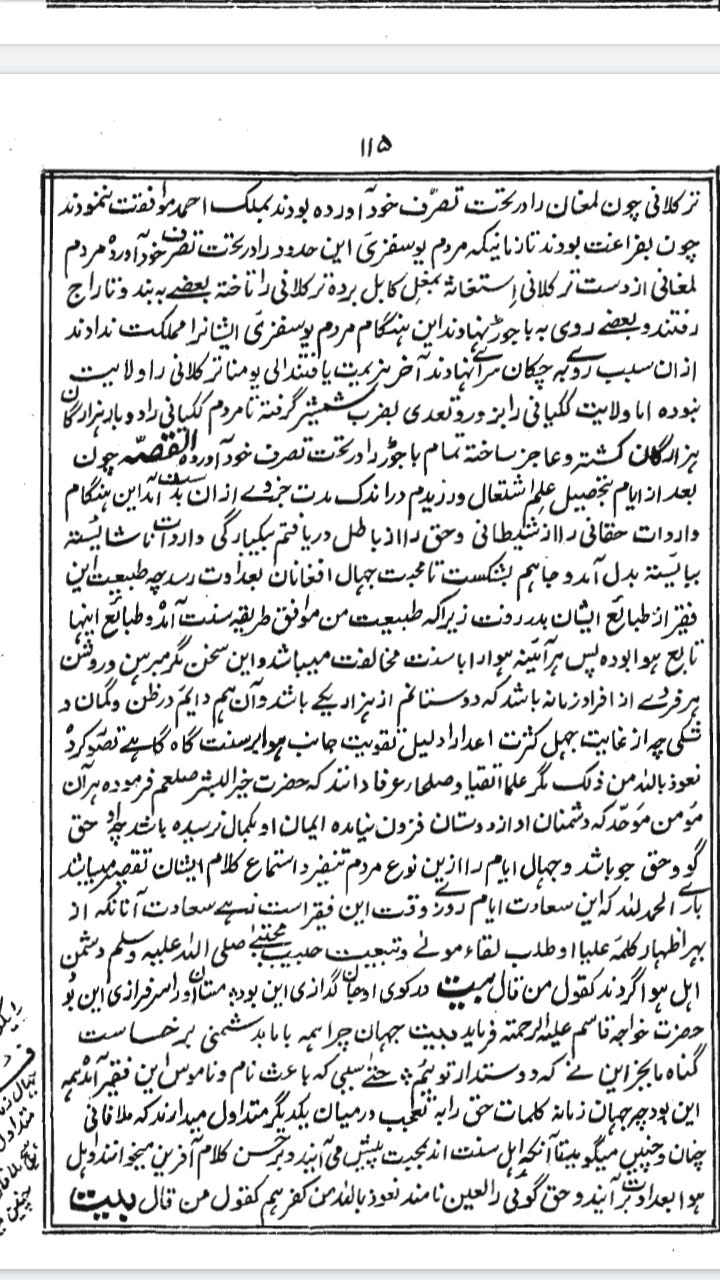 ۱۱۵
ترکلانی چون لمغان را در تحت تصرّف خود آورده بودند بملک احمد موافقت ننمودند
چون بفراغت بودند تا زمانیکه مردم یوسفزی این حدود را در تحت تصرف خود آورده مردم
لمغانی از دست ترکلانی اِستغاثهٔ بمغل کابل برده ترکلانی را تاخته بعضے به بند و تاراج
رفتند و بعضے روی به باجوڑ نهادند این هنگام مردم یوسفزی ایشانرا مملکت ندادند
ازان سبب روے به چکان سراے نهادند آخر هزیمت یافتند الی یومنا ترکلانی را ولایت
نبوده اما ولایت ککیانی را بزور و تعدی بضرب شمشیر گرفته تا مردم ککیانی را
هزارگان کشته و عاجز ساخته تمام باجوڑ را در تحت تصرف خود آورده القصّه چون
بعد از ایام بتحصیل علم اشتغال ورزیدم در اندک مدت ازان بدست آمد این هنگام
واردات حقانی را از شیطانی و حق را از باطل دریافتم بیکبارگی واردات ناشایسته
ببایسته بدل آمد و جاهم بشکست تا محبت جهال افغانان بعداوت رسید چه طبیعت این
فقیر از طبائع ایشان بدر رفت زیرا که طبیعت من موافق طریقه سنت آمد و طبائع اینها
تابع هوا بوده پس هر آئینه هوا را با سنت مخالفت میباشد و این سخن مگر مبرهن و روشن
هر فردے از افراد زمانه باشد که دوستانم از هزار یکے باشد و آن هم دایم در ظن و گمان و
شکی چه از غایت جهل کثرت اعداء را دلیل تقویت جانب هوا بر سنت گاه گاهے تصور کرده
نعوذ بالله من ذلک مگر علما اتقیا و صلحا و عرفا دانند که حضرت خیر البشر صلعم فرموده هر آن
مؤمن موحّد که دشمنان او از دوستان فزون نیامده ایمان او بکمال نرسیده باشد چه او حق
گو و حق جو باشد و جهال ایام را ازین نوع مردم تنفر و استماع کلام ایشان تقصیر میباشد
بارے الحمد لله که این سعادت ایام روزے وقت این فقیر است زهے سعادت آنانکه از
بهر اظهار کلمه علیا و طلب لقاء مولے و تبعیت حبیب مجتبےٰ صلی الله علیه وسلم دشمن
اهل هوا گردند کقول من قال بیت در کوی گدازی این بوده مستان را سرفرازی این بو
حضرت خواجه قاسم علیه الرحمته فرماید بیت جهان چرا همه با ما بدشمنی برخاست
گناه ما بجز این نے که دوستدار توئیم حتے سببی که باعث نام و ناموس این فقیر آمد همه
این بود چه جهان زمانه کلمات حق را به تعجب درمیان یکدیگر متداول میدارند که ملا فانی
چنان و چنین میگوید آنکه اهل سنت اند بمحبت پیش می آیند و بر حسن کلام آفرین میخوانند و اهل
هوا بعداوت برآیند و حق گوئی را لعین نامند نعوذ بالله من کفرهم کقول من قال بیت